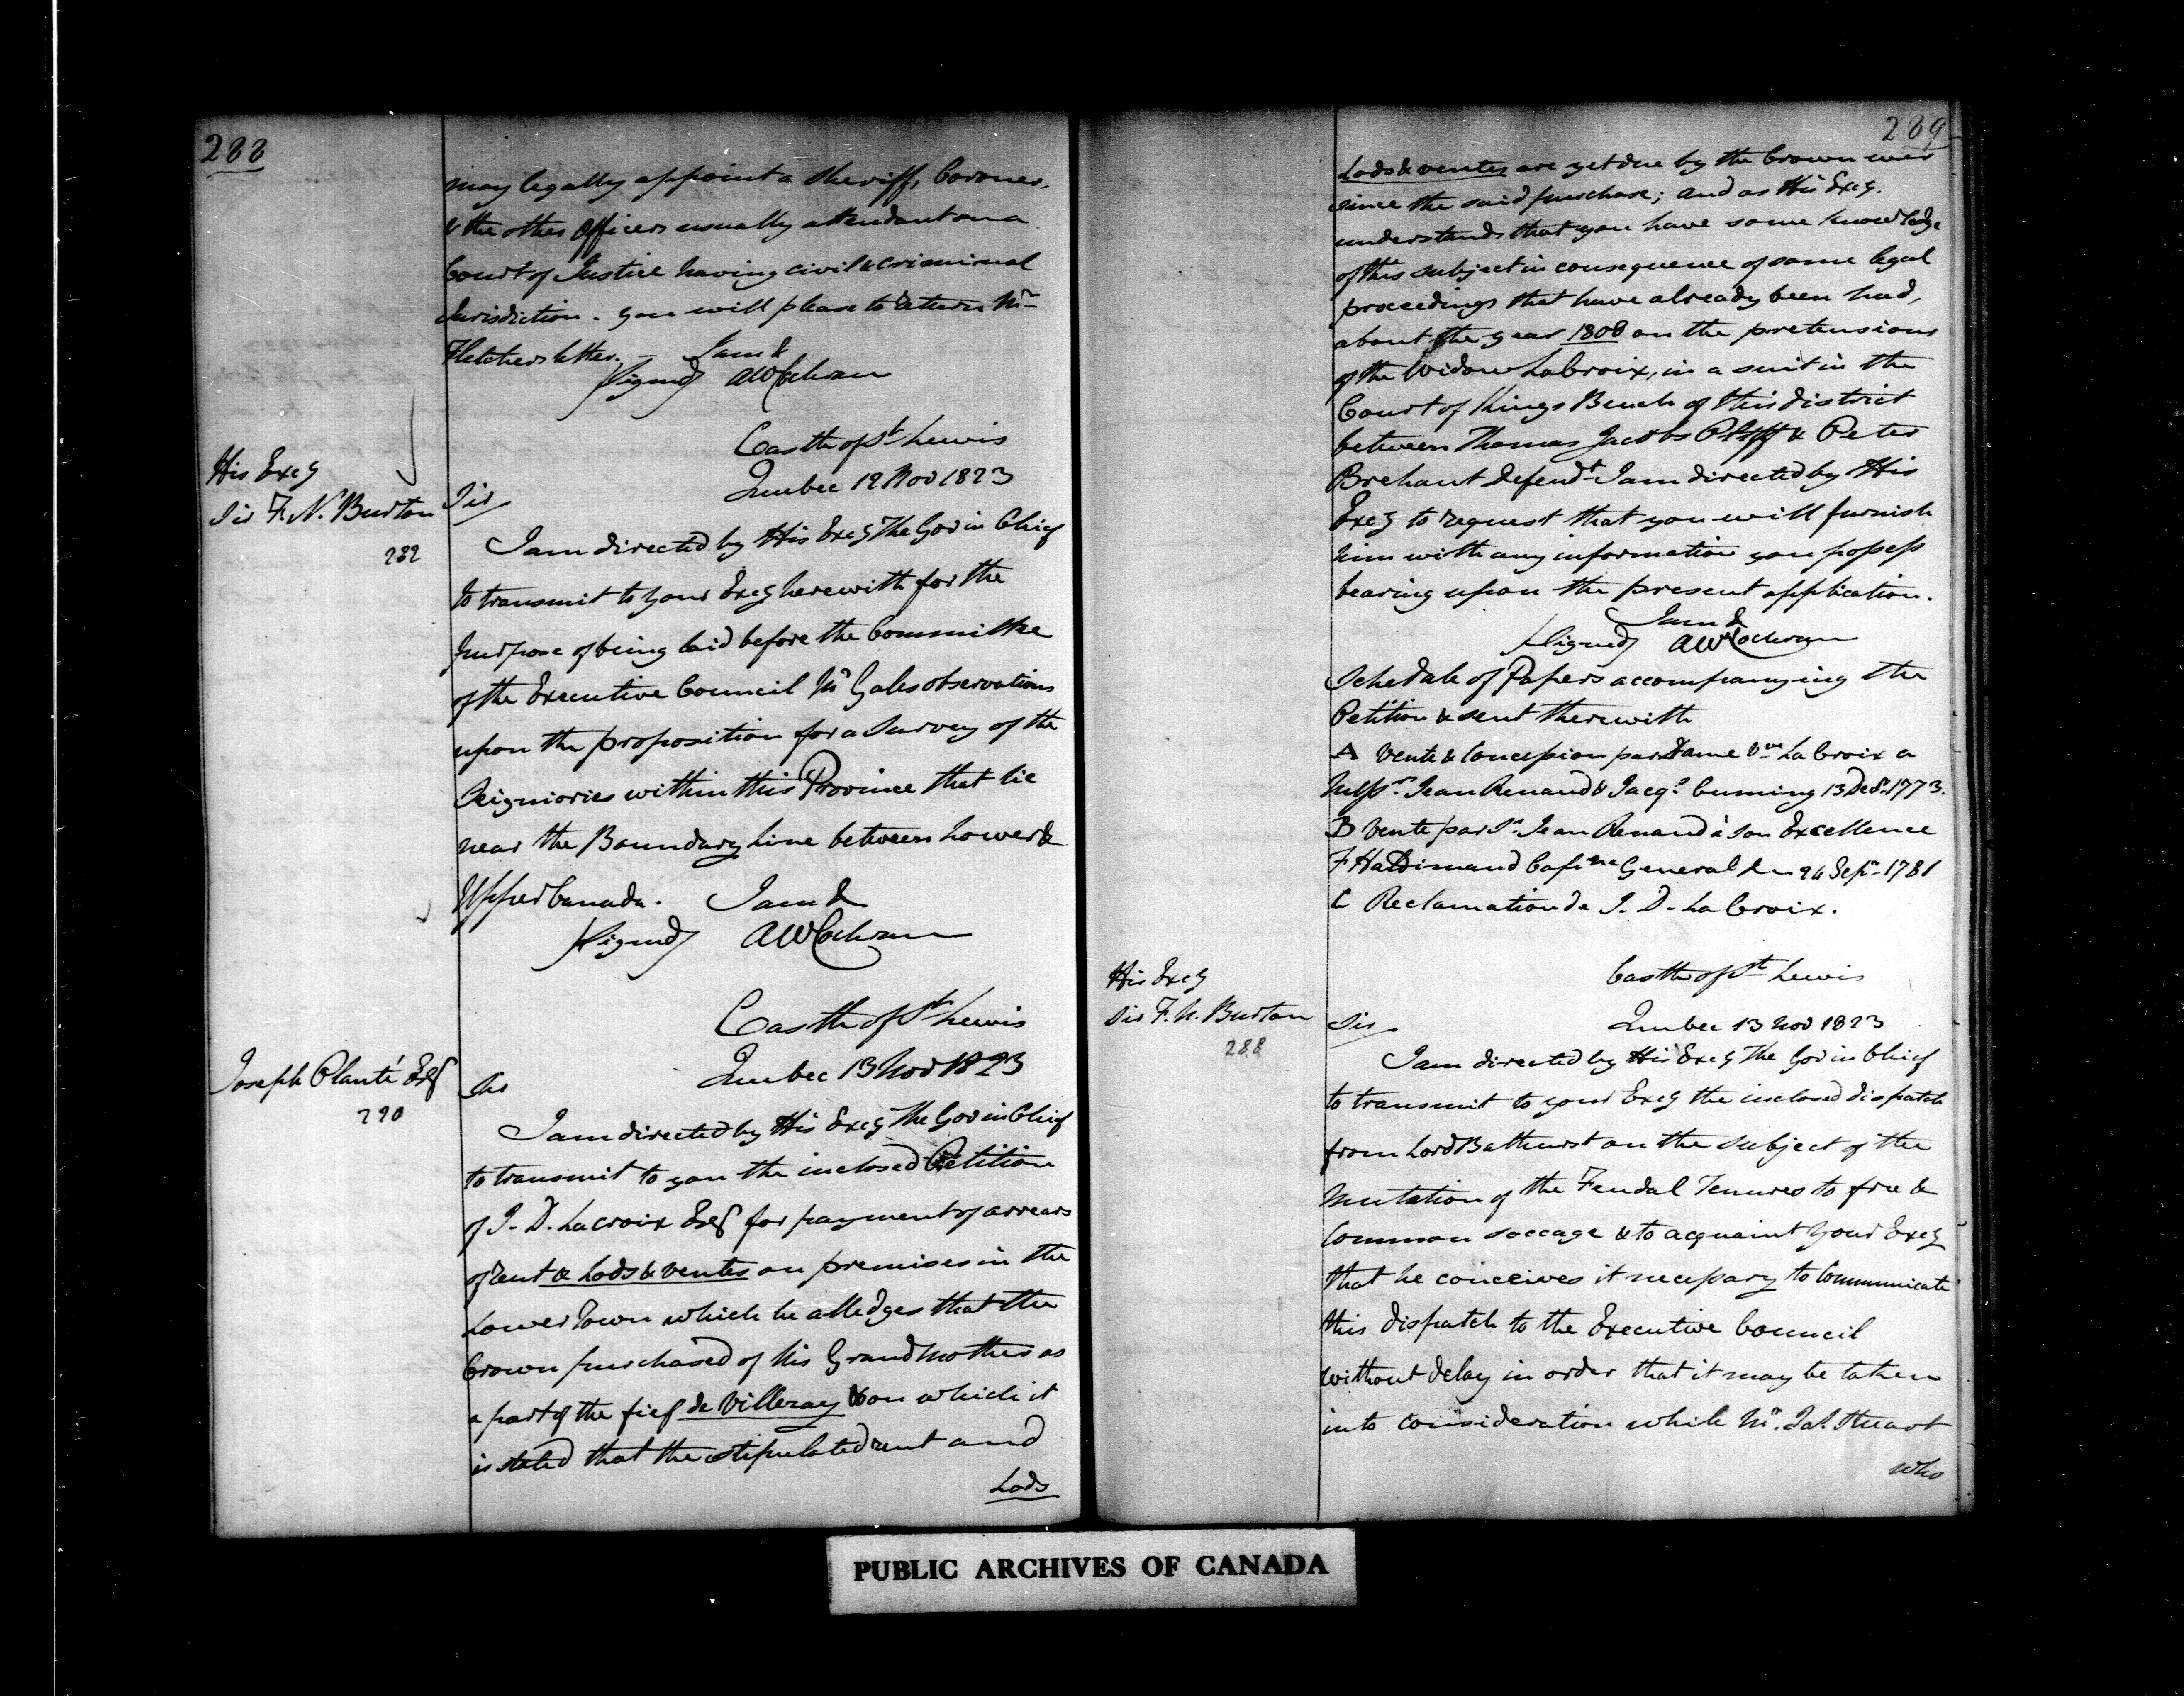 288
may legally appoint a Sheriff, Coroner,
& the other Officers usually attendant on a
Court of Justice having civil & criminal
Jurisdiction. you will please to return Mr
Fletchers letter. — I am &
Signed AWCochran
Castle of St Lewis
Quebec 12 Nov 1823
His Excy
Sir F. N. Burton
282
Sir
I am directed by His Excy The Gov in Chief
to transmit to your Excy herewith for the
purpose of being laid before the Committee
of the Executive Council Mr Gales observations
upon the proposition for a Survey of the
Seigniories within this Province that lie
near the Boundary Line between Lower &
Upper Canada. I am &
Signed AWCochran
Castle of St Lewis
Quebec 13 Nov 1823
Joseph Planté Esq
290
Sir
I am directed by His Excy The Gov in Chief
to transmit to you the inclosed Petition
of J. D. Lacroix Esq for payment of arrears
of rent & Lods & ventes on premises in the
Lower Town which he alledges that the
Crown purchased of his Grandmother as
a part of the fief de Villeray & on which it
is stated that the stipulated rent and
Lods
289
Lods & ventes are yet due by the Crown ever
since the said purchase; and as His Excy.
understands that you have some knowledge
of this subject in consequence of some legal
proceedings that have already been had,
about the year 1808 on the pretensions
of the Widow LaCroix, in a suit in the
Court of Kings Bench of this district
between Thomas Jacobs Pltff & Peter
Brehaut Defendt I am directed by His
Excy to request that you will furnish
him with any information you possess
bearing upon the present application.
I am &
Signed AWCochran
Schedale of Papers accompanying the
Petition & sent therewith
A Vente & Concession par Dame Vve LaCroix a
Messrs. Jean Renaud & Jacqs Cuming 13 Decr. 1773.
B Vente par Sr. Jean Renaud à son Excellence
F Haldimand Capne General &c 24 Sepr. 1781
C Reclamation de J. D. LaCroix.
Castle of St Lewis
Quebec 13 Nov 1823
His Excy
Sir F. N. Burton
288
Sir
I am directed by His Excy The Gov in Chief
to transmit to your Excy the inclosed dispatch
from Lord Bathurst on the subject of the
Mutation of the Feudal Tenures to free &
Common soccage & to acquaint your Excy
that he conceives it necessary to Communicate
this dispatch to the Executive Council
without delay in order that it may be taken
into consideration while Mr. Jas. Stuart
who
PUBLIC ARCHIVES OF CANADA